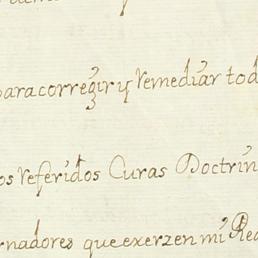 para corregir y remediar tod
os referidos Curas Doctrin
rnadores que exerzen mi Rea